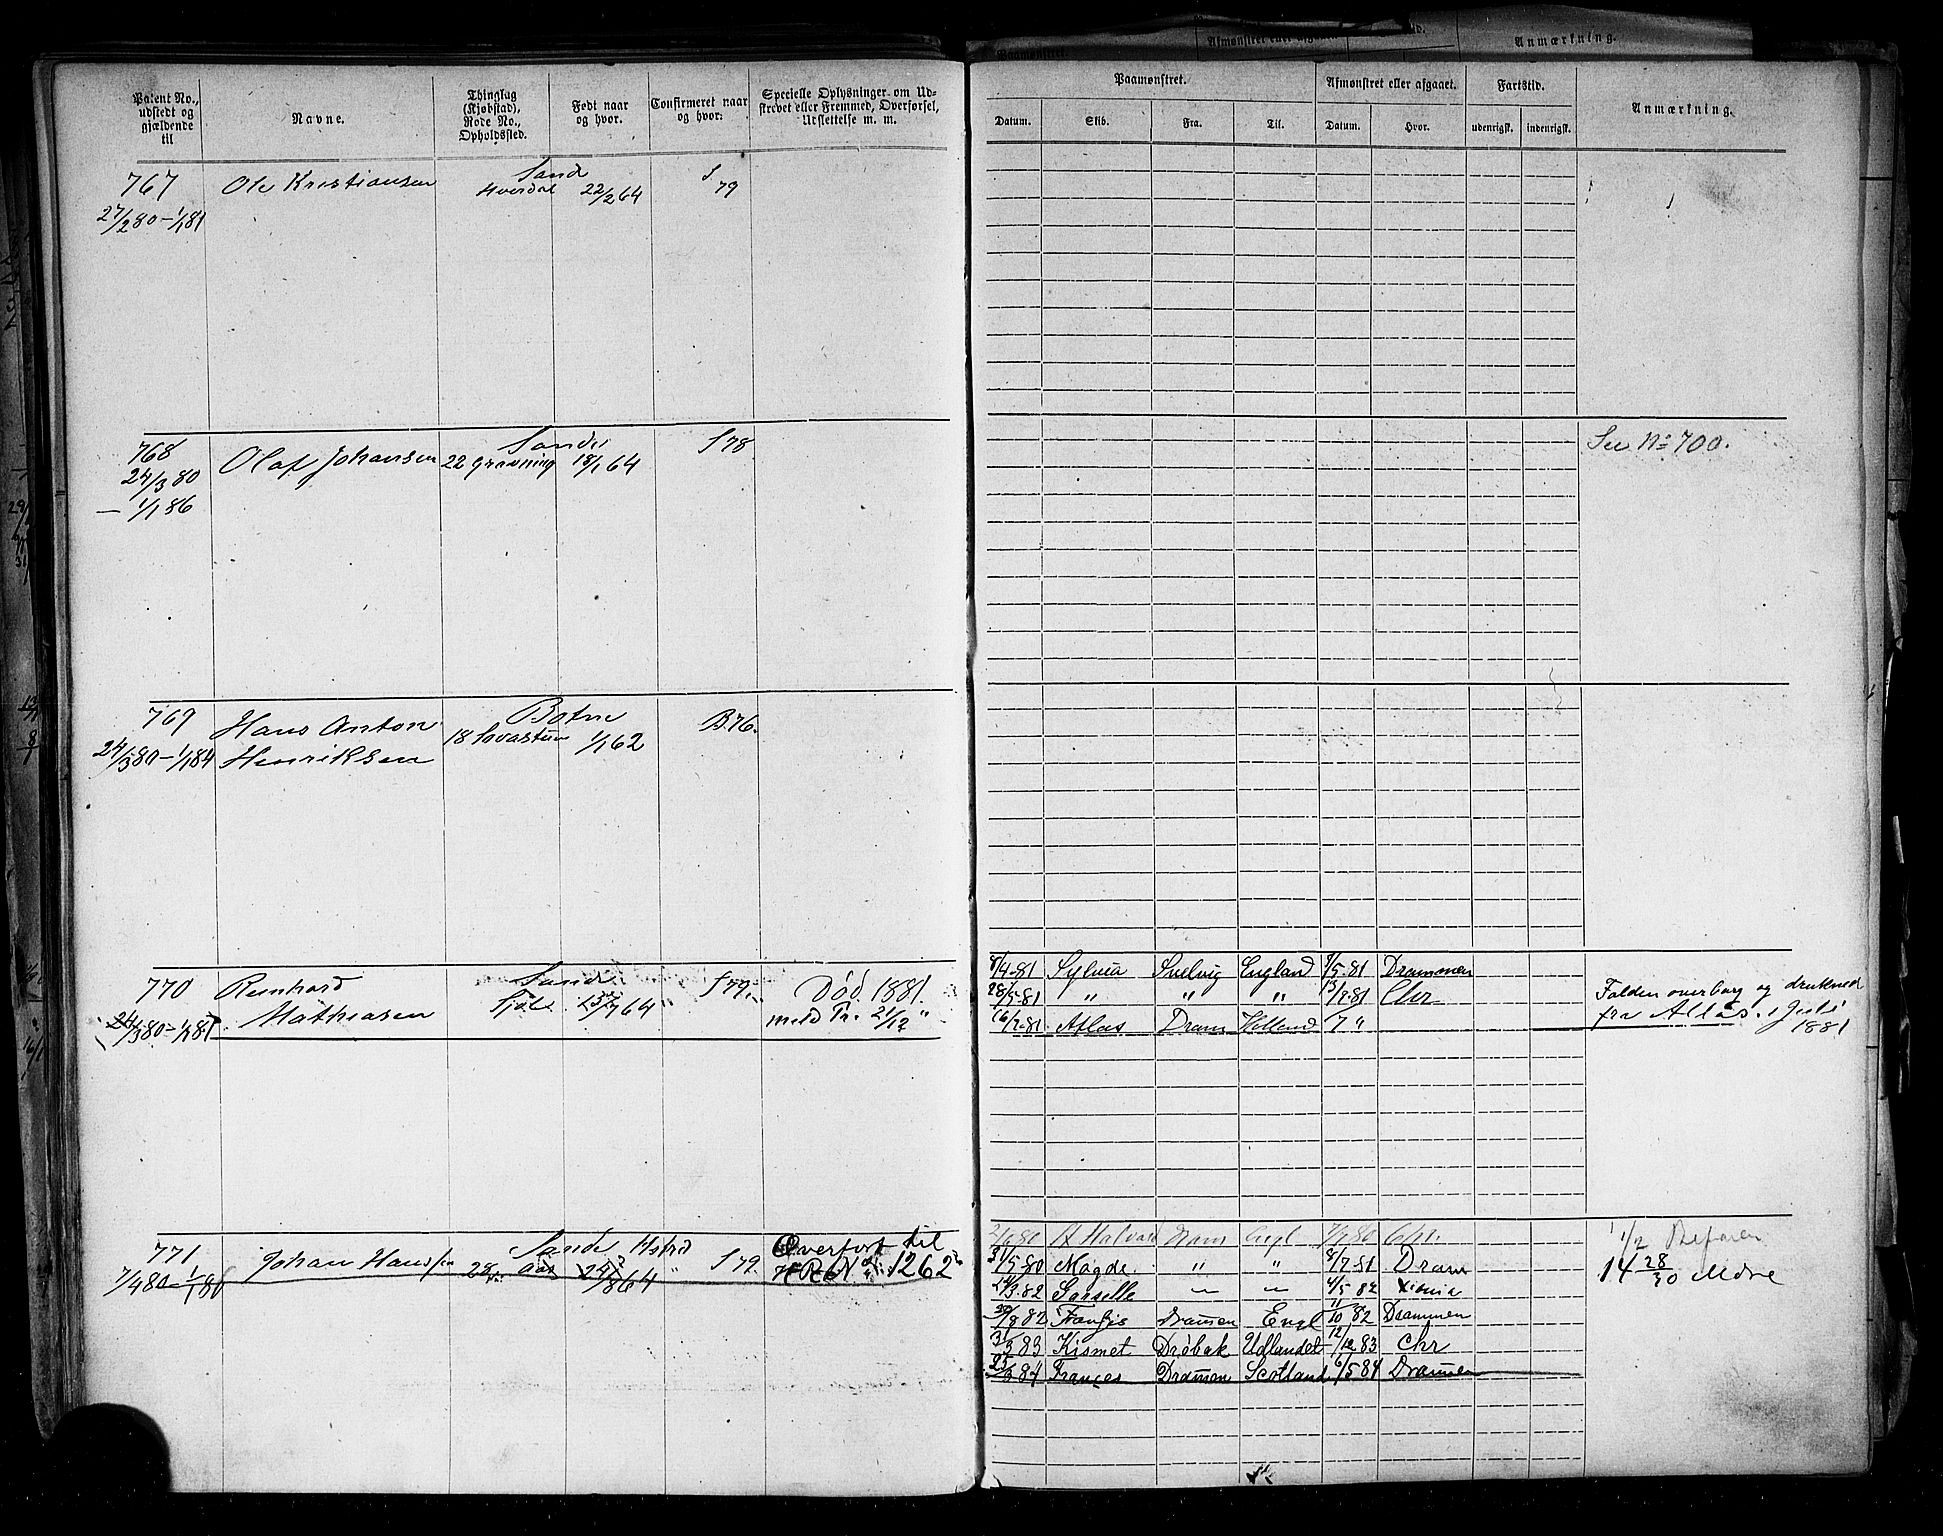 Patent No., udstedt og gjældende til
Navne.
Thinglag (Kjøbstad), Rode No., Opholdssted.
Født naar og hvor.
Confirmeret naar og hvor:
Specielle Oplysninger om Udskrevet eller Fremmed, Overførsel, Udslettelse m. m.
Paamønstret.
Afmønstret eller afgaaet.
Fartstid.
Anmærkning.
Datum.
Skib.
Fra.
Til.
Datum.
Hvor.
udenrigsk.
indenrigsk.
767
27/2 80 – 1/1 81
Ole Kristiansen
Sand
Hverdal 22/2 64
S
79
768
24/3 80
– 1/1 86
Olaf Johansen
Sande
22 gravning 18/1 64
S 78
See No 700.
769
24/3 80 – 1/1 84
Hans Anton
Henriksen
Botne
18 1/1 62
B. 76.
770
24/3 80 – 1/1 85
Reinhard
Mathiasen
Sand
64
S 79.
Død 1881.
meld Pr. 21/12 "
8/4 81 Sylvia Svelvig England 9/5 81 Drammen
28/5 81 " " " 13/7 81 Chr
16/7 81 Atlas Dram Holland /7 "
Falden overbord og drukned
fra Atlas i Juli
1881
771
7/4 80 – 1/1 86
Johan Hanssen
Sande
28 Aas 64
S 79.
Overført til
No 1262
2/6 80 Halvard Dram Engl 7/9 80 Chr.
31/5 80 Magde. " " 8/7 81 Dram
24/3 82 " " 4/5 82 Xiania
30/8 82 Drammen Engl 11/10 82 Drammen
31/3 83 Kismet Drøbak Udlandet 12/12 83 Chr
25/3 84 Frances Drammen Scotland 6/5 84 Drammen
1 1/2 Befaren
14 28/30 Mdre